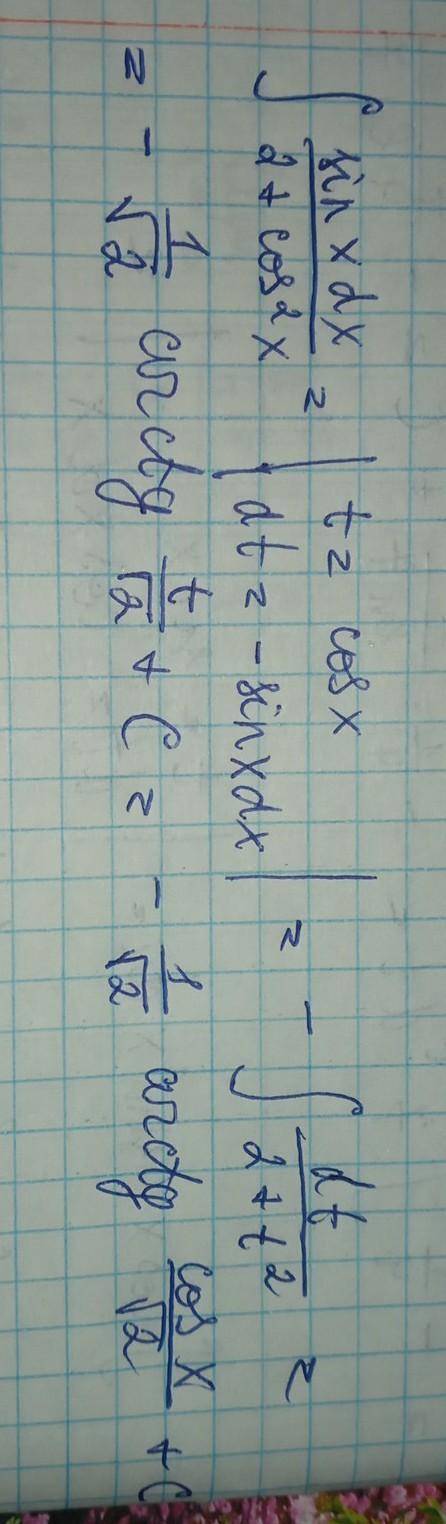 ∫ sin x dx / 2 + cos²x = | t = cos x dt = -sin x dx | = - ∫ dt / 2 + t² =
= - 1/√2 arctg t/√2 + C = - 1/√2 arctg cos x/√2 + C